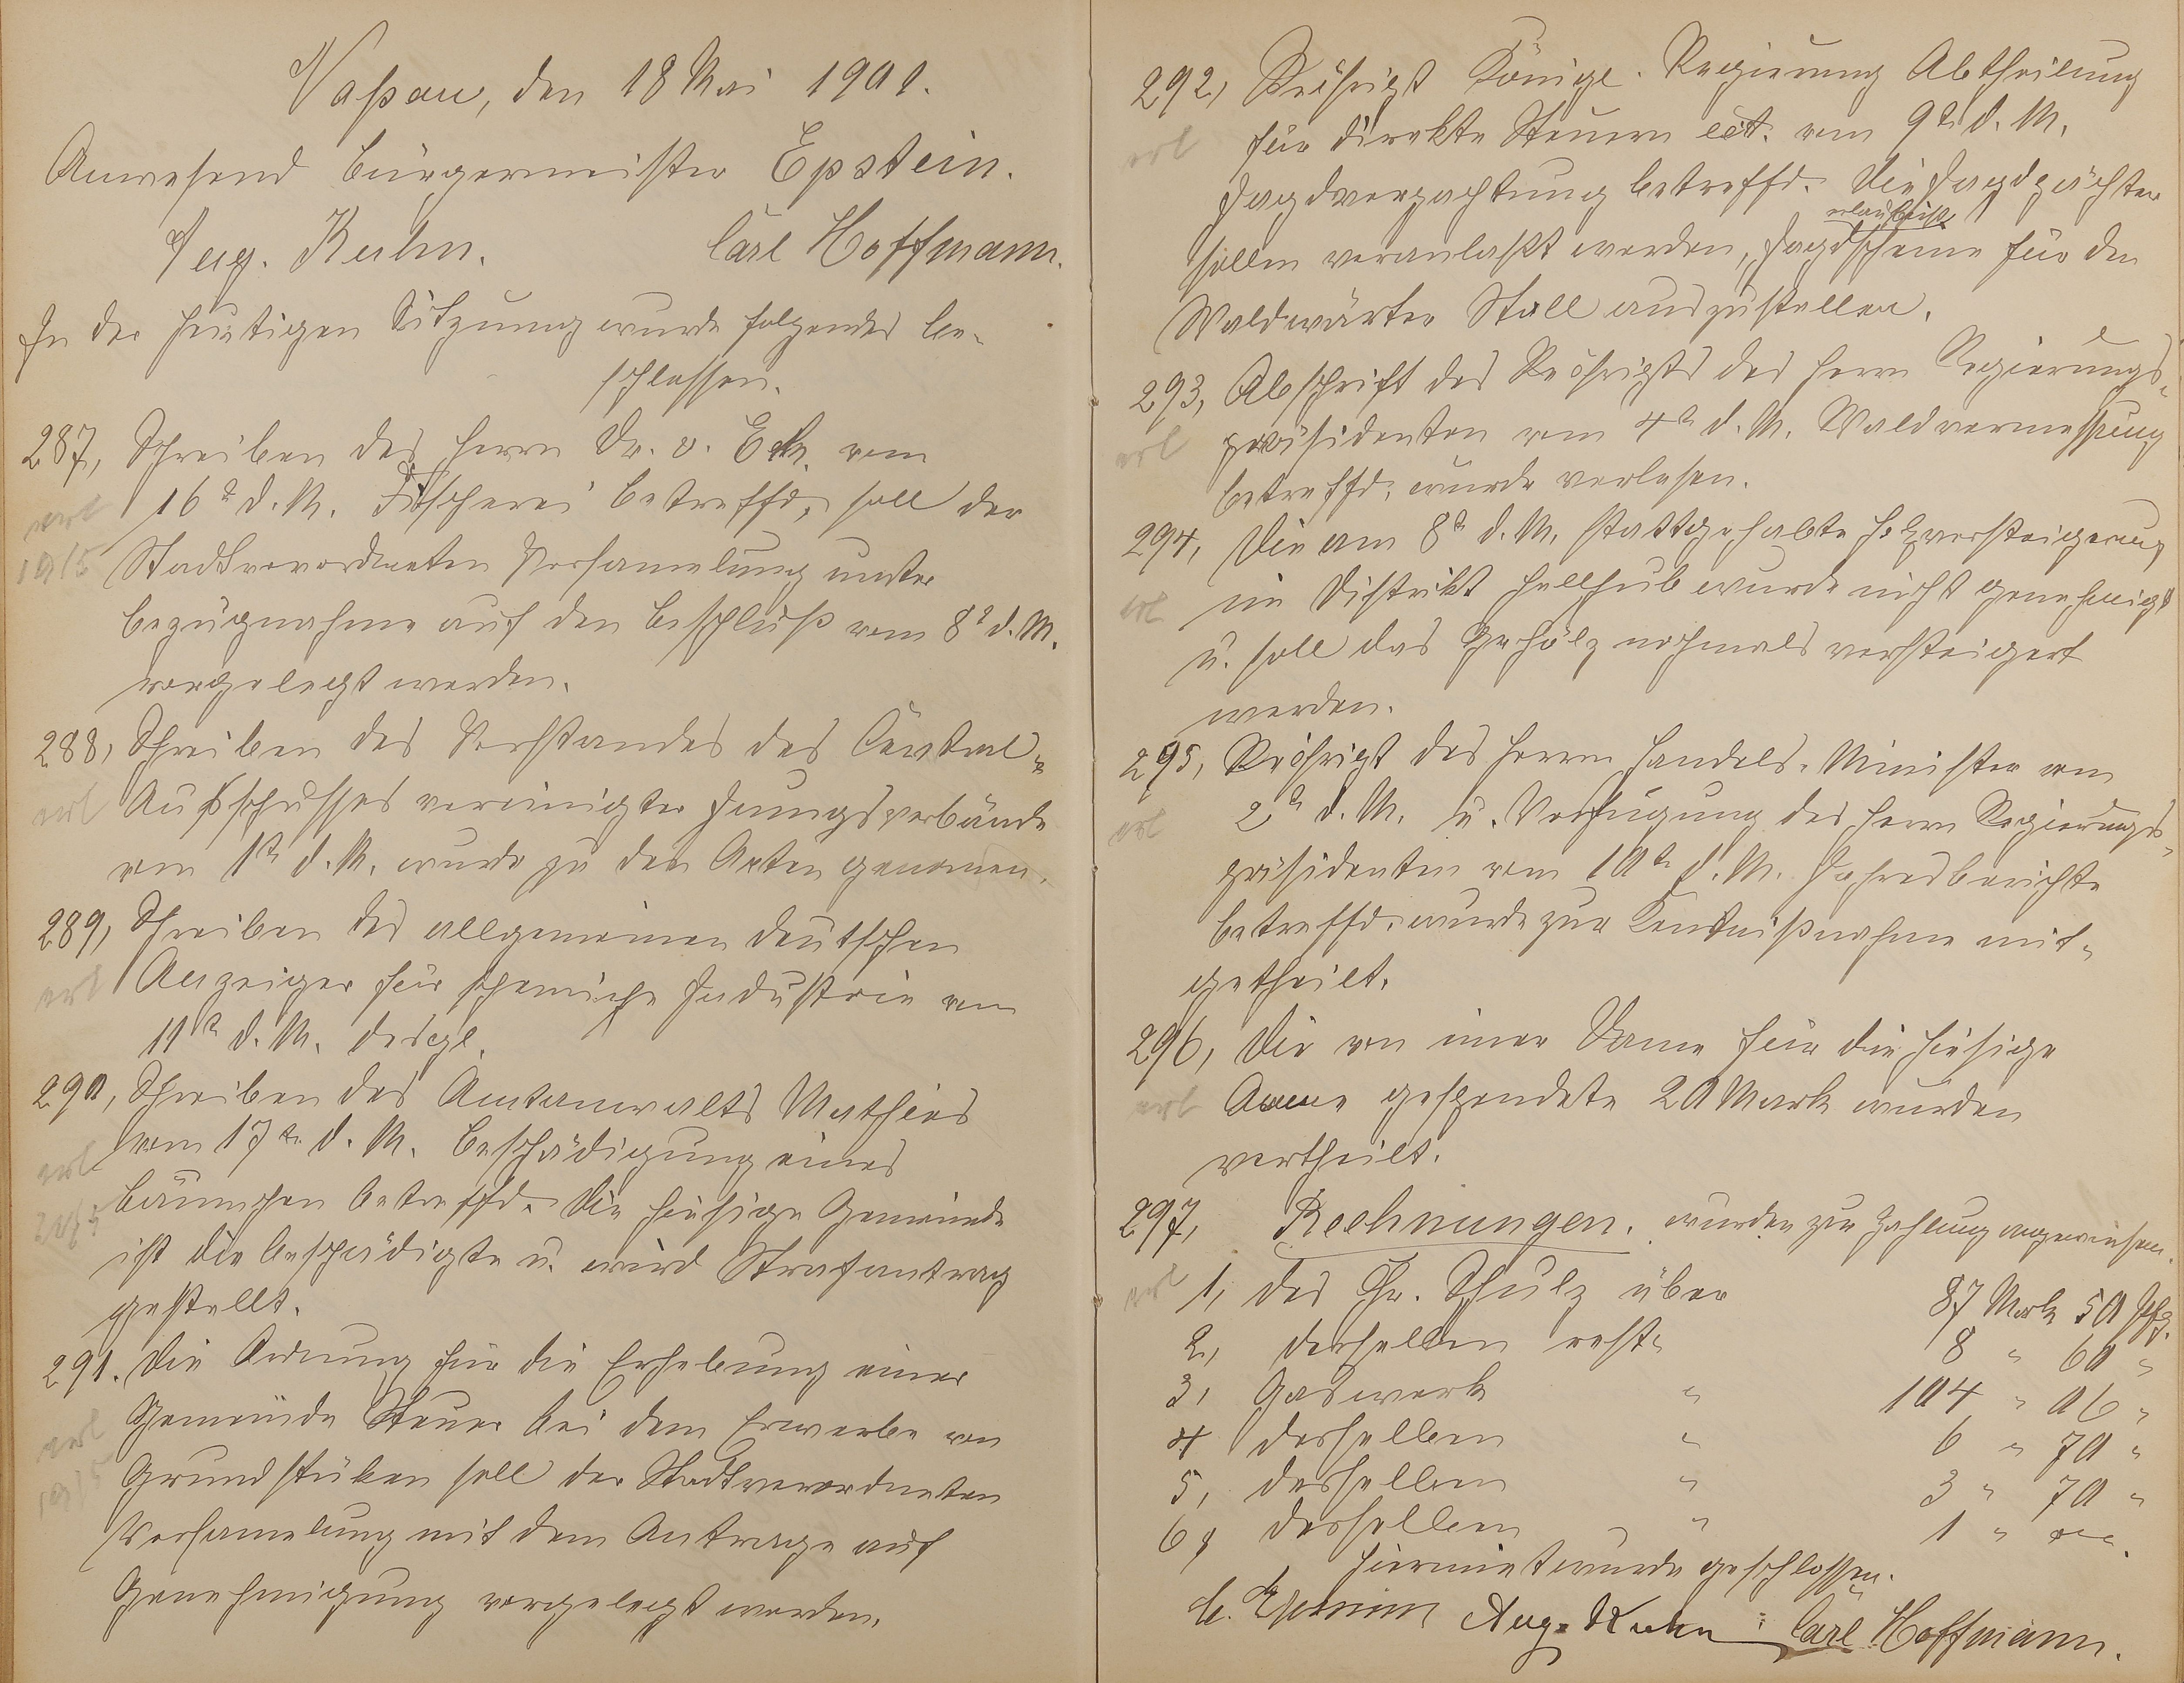 Naßau, den 18 Mai 1901.
Anwesend Bürgermeister Epstein.
Aug. Kuhn. Carl Hoffmann.
In der heutigen Sitzung wurde folgendes be-
schlossen.
287, Schreiben des Herrn Dr. v. Eck. vom
erl 16t d. M. Fischerei betreffd, soll der
19/5 Stadtverordneten Versamelung unter
bezugnahme auf den Beschluß vom 8t d. M.
vorgelegt werden.
288, Schreiben des Vorstandes des Central-
erl Ausschusses vereinigter Innungsverbände
vom 1t d. M. wurde zu den Acten genomen.
289, Schreiben des allgemeinen deutschen
erl Anzeiger für chemiche Industrie vom
11t d. M. desgl.
290, Schreiben des Amtanwalts Mathies
erl vom 17t d. M. Beschädigung eines
Bäumchen betreffd. Die hiesige Gemeinde
ist die beschädigte u. wird Strafantrag
gestellt.
291. Die Ordnung für die Erhebung einer
erl Gemeinde Steuer bei dem Erwerbe von
19/5 Grundstüken soll der Stadtverordneten
Versamelung mit dem Antrage auf
Genehmigung vorgelegt werden.
292, Rescript Königl. Regierung Abtheilung
erl für direkte Steuern ect. vom 9t d. M.
Jagdverpachtung betreffd. Die Jagdpächter
erlaubniß
sollen veranlaßt werden, Jagdscheine für den
Waldwärter Stoll auszustellen.
293, Abschrift des Rescripts des Herrn Regierungs-
erl präsidenten vom 4t d. M. Waldvermessung
betreffd. wurde verlesen.
294, Die am 8t d. M. stattgehabte Holzversteigerung
erl im Distrikt Hellhub wurde nicht genehmigt
u. soll das Gehölz nochmals versteigert
werden.
295, Rescript des Herrn Handels-Minister vom
erl 2t d. M. u. Verfügung des Herrn Regierungs-
präsidenten vom 10t d. M. Jahresberichte
betreffd. wurde zur Kentnißnahme mit-
getheilt.
296, Die von einer Dame für die hiesige
erl Arme gespendete 20 Mark wurden
vertheilt.
297, Rechnungen. wurden zur Zahlung angewiesen.
erl 1, des Chr. Schulz über 87 Mark 50 Pfg.
2, desselben rest. 8 " 60 "
3, Gaswerk " 104 " 06 "
4 desselben " 6 " 70 "
5, desselben " 3 " 70 "
6, desselben " 1 "
Hiermit wurde geschlossen.
Epstein Aug. Kuhn Carl Hoffmann.